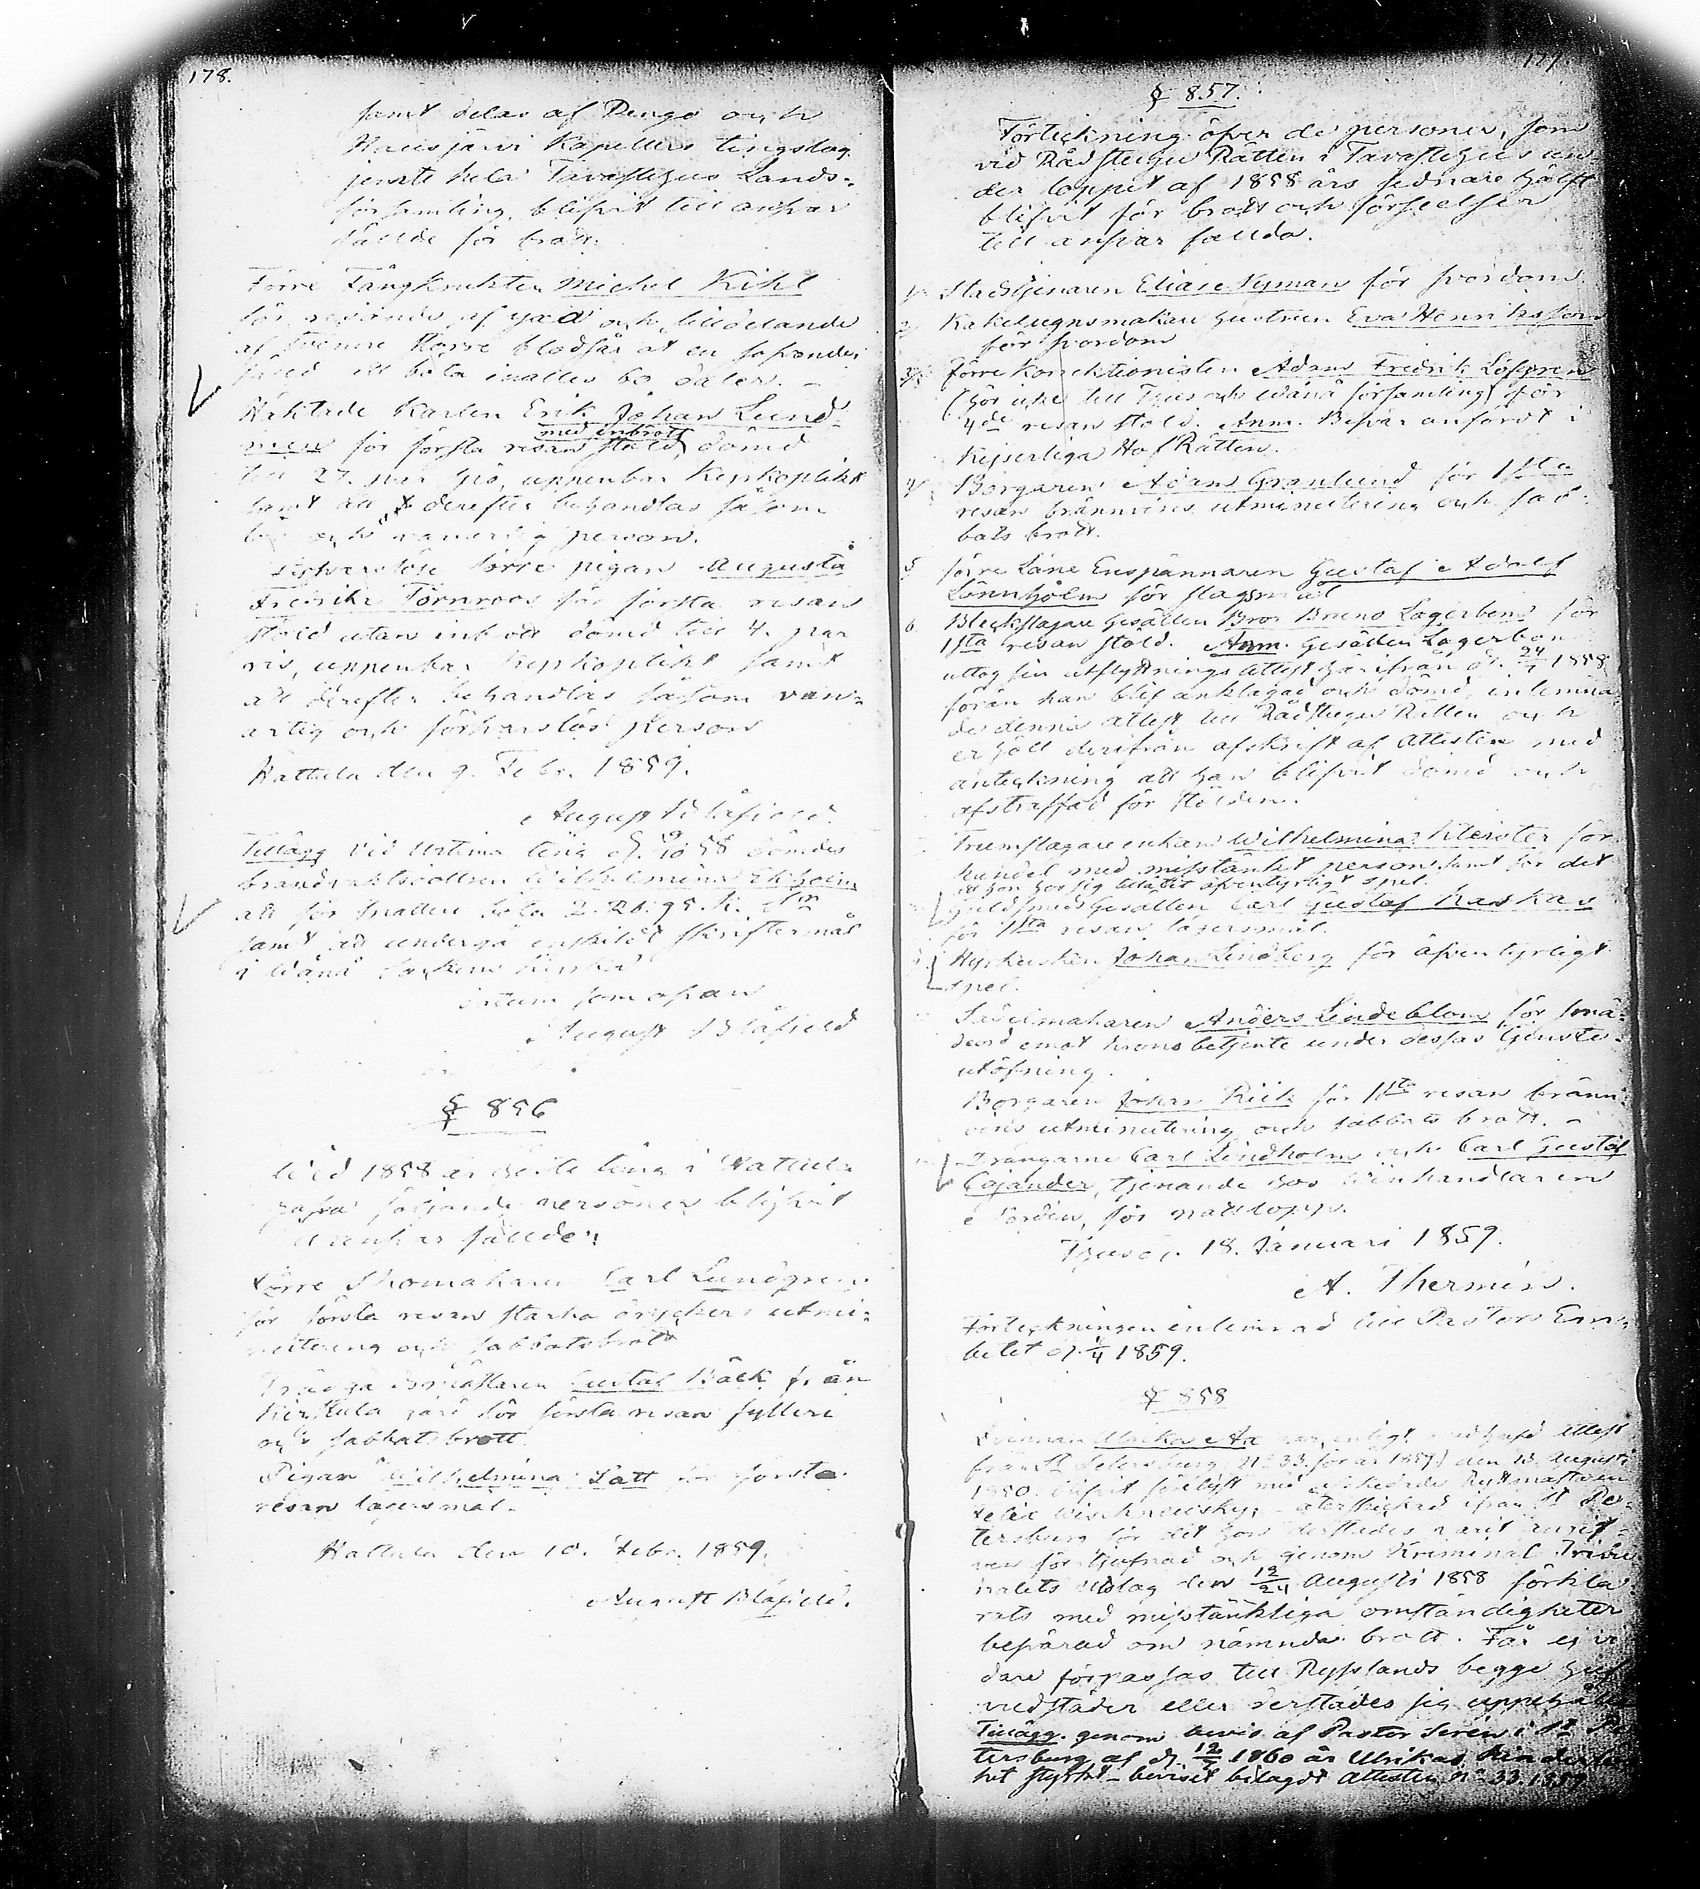 178.
samt delar af Rengo och
Hausjärvi Kapellers tingslag
jemte hela Tavastehus Lands-
församling, blifvit till ansvar
fällde för brott.
Förre Fångknekten Michel Kihl
för rifvande af gärd och tilldelande
af trenne större blodsår åt en
att böta inalles 60 daler. –
Häktade Karlen Erik Johan Lund-
men för första resan stöld med inbrott dömd
till 27. par spö, uppenbar Kyrkoplikt
samt att derefter behandlas såsom
och vanartig person.
förre pigan Augusta
Fredrika Törnroos för första resan
stöld utan inbrott dömd till 4. par
ris, uppenbar Kyrkoplikt samt
att derefter behandlas såsom van-
artig och försvarslös person
Hattula den 9. Febr. 1859.
August Blåfield.
Tillägg Vid Urtima ting d. 19/10 58 dömdes
brandvaktsdottren Wilhelmina Ekholm
att för snatteri böta 2. Rb. 95. k. S:m
samt att undergå enskildt skriftermål
i Wånå Sockens Kyrka
Datum som ofvan
August Blåfield
§ 856
Vid 1858 års Höste ting i Hattula
hafva följande personer blifvit
till ansvar fällde:
Förre Skomakaren Carl Lundgren
för första resan starka dryckers utmi-
nutering och sabbatsbrott
Gustaf Bäck från
Kirstula gård för första resan fylleri
och sabbatsbrott
Pigan Wilhelmina Lätt för första
resan lägersmål.
Hattula den 10. Febr. 1859.
August Blåfield.
§ 857.
Förteckning öfver de personer, som
vid Rådstugu Rätten i Tavastehus un-
der loppet af 1858 års sednare hälft
blifvit för brott och förseelser
till ansvar fällda.
1. Stadstjenaren Elias Nyman för svordom.
2. Kakelugnsmakare hustrun Eva Henriksson
för svordom
3. Förre Konektionisten Adam Fredrik Löfgren
(hör icke till Thus och Wånå församling) för
4de resan stöld. Anm. Besvär anfördt i
Kejserliga Hof Rätten.
4. Borgaren Adam Granlund för 1sta
resan brännvins utminutering och sab-
bats brott.
5 förre Läne Enspännaren Gustaf Adolf
Lönnholm för slagsmål
6 Bleckslagare Gesällen Bror Bruno Lagerbom för
1sta resan stöld. Anm. Gesällen Lagerbom
uttog sin utflyttnings attest härifrån d. 24/7 1858
förän han blef anklagad och dömd, inlemna-
de denne attest till Rådstugu Rätten och
erhöll derifrån afskrift af attesten med
anteckning att han blifvit dömd och
afstraffad för stölden.
Trumslagare enkan Wilhelmina Klerster för
handel med misstänkt person samt för det
att hon hos sig tillåtit äfventyrligt spel.
Guldsmeds Gesällen Carl Gustaf Kaskas
för 1sta resan lägersmål.
Hyrkusken Johan Lindberg för äfventyrligt
spel.
Sadelmakaren Anders Lindeblom för smä-
deord emot Krono betjente under dessas tjenste-
utöfning.
Borgaren Johan Kiik för 1sta resan bränn-
vins utminutering och sabbats brott. –
Drängarne Carl Lindholm och Carl Gustaf
Cajander, tjenande hos Winhandlaren
för nattlopp.
Thus d. 18. Januari 1859.
A. Thermén.
Förteckningen inlemnad till Pastors Em-
betet d. 1/4 1859.
§ 858
Qvinnan Ulrika Ax har, enligt medhafd attest
från St Petersburg (N: 33. för år 1859) den 13. Augusti
1850. blifvit förlyst med afskedade Ryttmästaren
Felix Wischnewsky, – återskickad ifrån St Pe-
tersburg för det hon derstädes varit angif-
ven för tjufnad och genom Kriminal Tribu
nalets utslag den 12/24 Augusti 1858 förkla-
rats med misstänkliga omständigheter
besvärad om nämnda brott. Får ej vi
dare förpassas till Rysslands begge huf
vudstäder eller derstädes sig uppehålla
Tillägg. genom bevis af Pastor Sirén i St Pe
tersburg af d. 12/7 1860 är Ulrikas hinderlös
het styrkt – beviset bilagdt Attesten N: 33. 1859